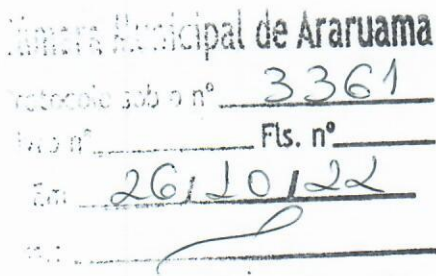 Câmara Municipal de Araruama
Protocolo sob o nº 3361
Livro nº Fls. nº
Em 26/10/22